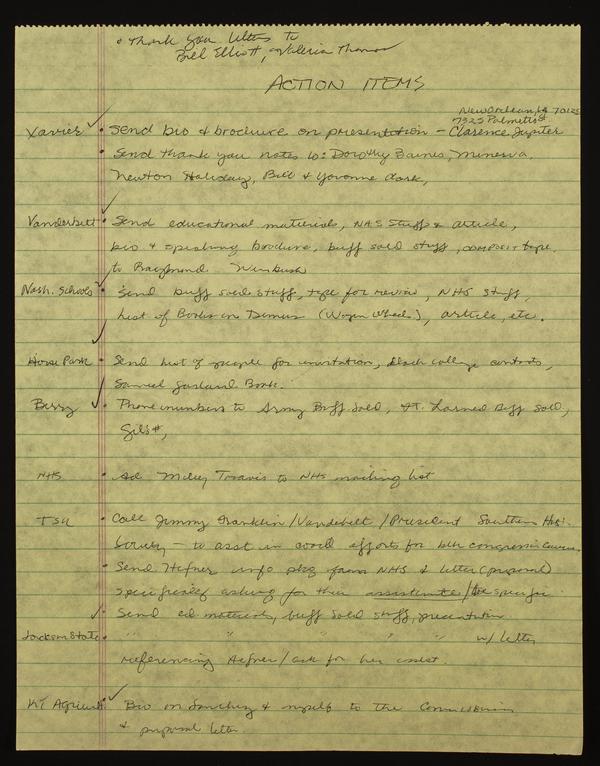 • Thank you letters to
Bill Elliott, Valeria Thomas
ACTION ITEMS
New Orleans, LA 70125
7325 Palmetto St.
Xavier • Send bio & brochure on presentation – Clarence Jupiter
• Send thank you notes to: Dorothy Baines, Minerva,
Newton Holiday, Bill & Yovonne
Vanderbilt • Send educational materials, NHS stuff & article,
bio & speaking brochure, buff sold stuff, tape
to Raymond Winbush
Nash. Schools • Send buff sold stuff, tape for review, NHS stuff,
List of Books on (Wagon Wheels), article, etc.
Horse Park • Send list of people for invitation, black college contacts,
Samuel Garland Book.
Berry • Phone numbers to Army Buff. Sold, Ft. Larned Buff Sold,
Gil's #,
NHS • Ad Travis to NHS mailing list
TSU • Call Jimmy Franklin / Vanderbilt / President Southern Hist.
Society – to asst in efforts for blk congressional caucus
• Send Hefner info pkg from NHS & letter (proposal)
specifically asking for their assistance / be specific
• Send ed materials, buff sold stuff, presentation
Jackson State • " " " " " w/ letter
referencing Hefner / ask for her assist.
KY Agricult. • Bio on Sanchez & myself to the Commissioner
& proposal letter